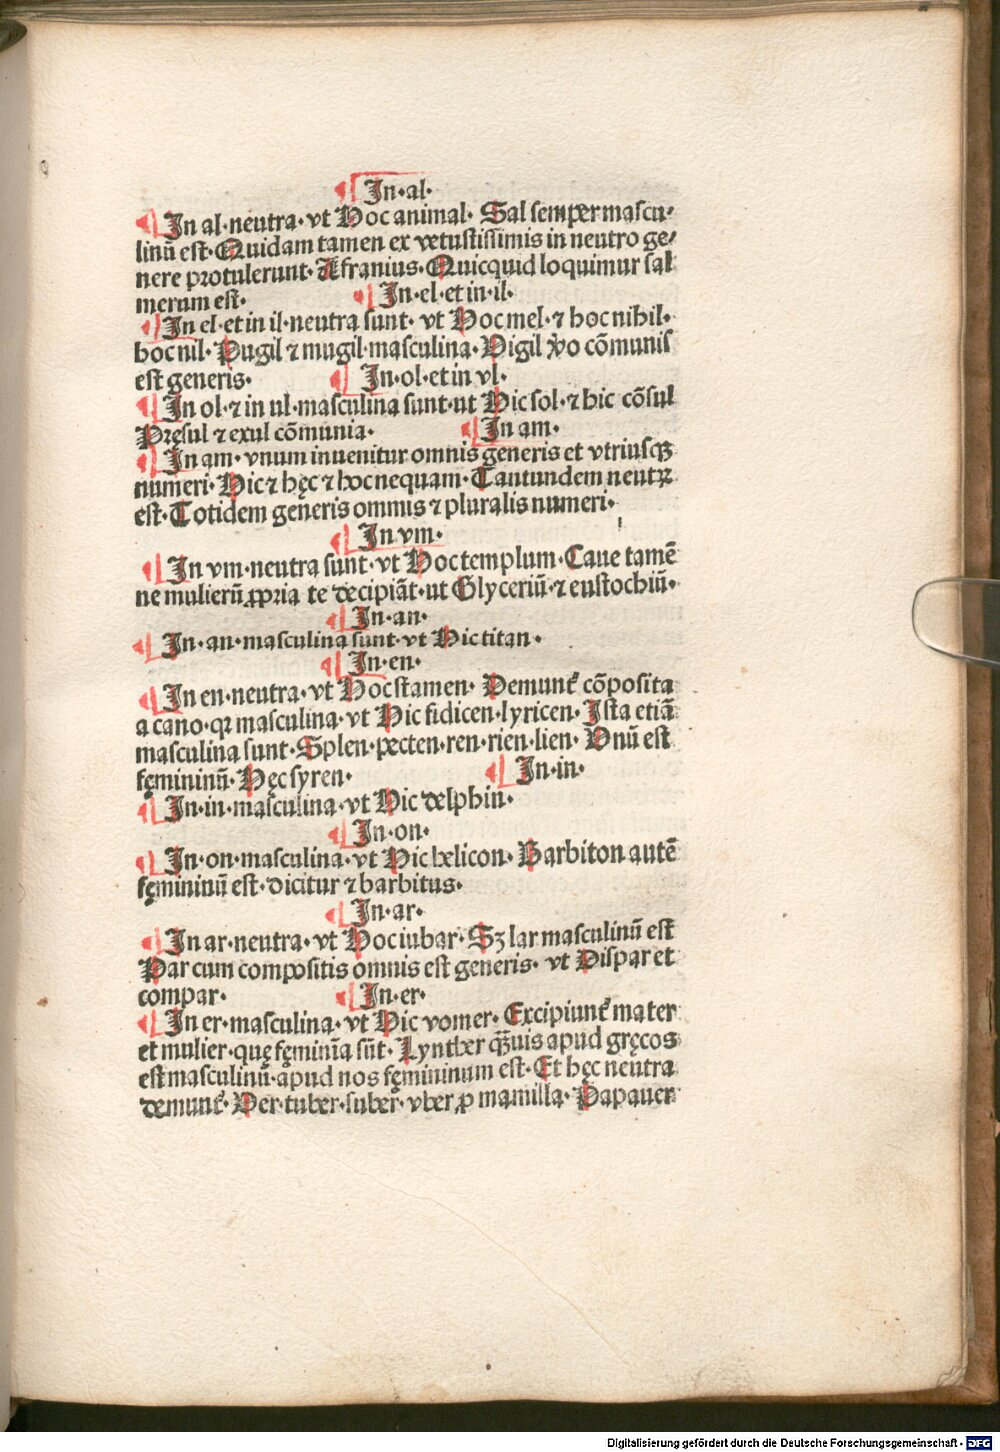 ¶ In·al·
¶ In al·neutra·vt Hoc animal· Sal semper mascu⸗
linū est·Quidam tamen ex vetustissimis in neutro ge⸗
nere protulerunt·Afranius·Quicquid loquimur sal
merum est· ¶ In·el·et in·il·
¶ In el·et in il·neutra sunt· vt Hoc mel·⁊ hoc nihil·
hoc nil·Pugil ⁊ mugil·masculina·Vigil v̄o cōmunis
est generis· ¶ In·ol·et in vl·
¶ In ol·⁊ in ul·masculina sunt·ut Hic sol·⁊ hic cōsul
Pręsul ⁊ exul cōmunia· ¶ In am·
¶ In am·vnum inuenitur omnis generis et vtriusqꝫ
numeri·Hic ⁊ hęc ⁊ hoc nequam·Tantundem neutꝝ
est·Totidem generis omnus ⁊ pluralis numeri·
¶ In vm·
¶ In vm·neutra sunt·vt Hoc templum·Caue tamē
ne mulierū ꝓpria te decipiāt·ut Glyceriū·⁊ eustochiū·
¶ In·an·
¶ In·an·masculina sunt·vt Hic titan·
¶ In·en·
¶ In en·neutra·vt Hoc stamen· Demunt᷑ cōposita
a cano·qꝛ masculina·vt Hic fidicen·lyricen·Ista etiā
masculina sunt·Splen·pecten·ren·rien·lien· Vnū est
femininū·Hęc syren· ¶ In·in·
¶ In·in·masculina·vt Hic delphin·
¶ In·on·
¶ In·on·masculina·vt Hic helicon·Barbiton autē
fęmininū est·dicitur ⁊ barbitus·
¶ In·ar·
¶ In ar·neutra·vt Hoc iubar·Sꝫ lar masculinū est
Par cum compositis omnis est generis·vt Dispar et
compar· ¶ In·er·
¶ In er·masculina·vt Hic vomer·Excipiunt᷑ mater
et mulier·quę fęminīa sūt·Lynther qꝫuis apud gręcos
est masculinū·apud nos fęmininum est·Et hęc neutra
demunt᷑·Ver·tuber·suber·vber ꝓ mamilla·Papauer
Digitalisierung gefördert durch die Deutsche Forschungsgemeinschaft - DFG